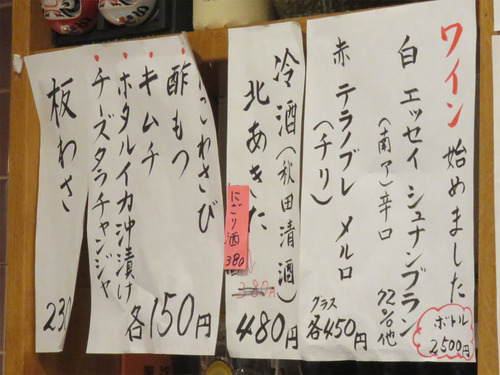 ワイン 始めました
白 エッセイ シュナンブラン
(南ア)辛口
グラス他
ボトル
2,500円
赤 テラノブレ メルロ
(チリ)
グラス
各450円
冷酒(秋田清酒)
北あきた
480円
にごり酒 380
380
こわさび
酢もつ
キムチ
ホタルイカ沖漬け
チーズタラチャンジャ
各150円
板わさ
23